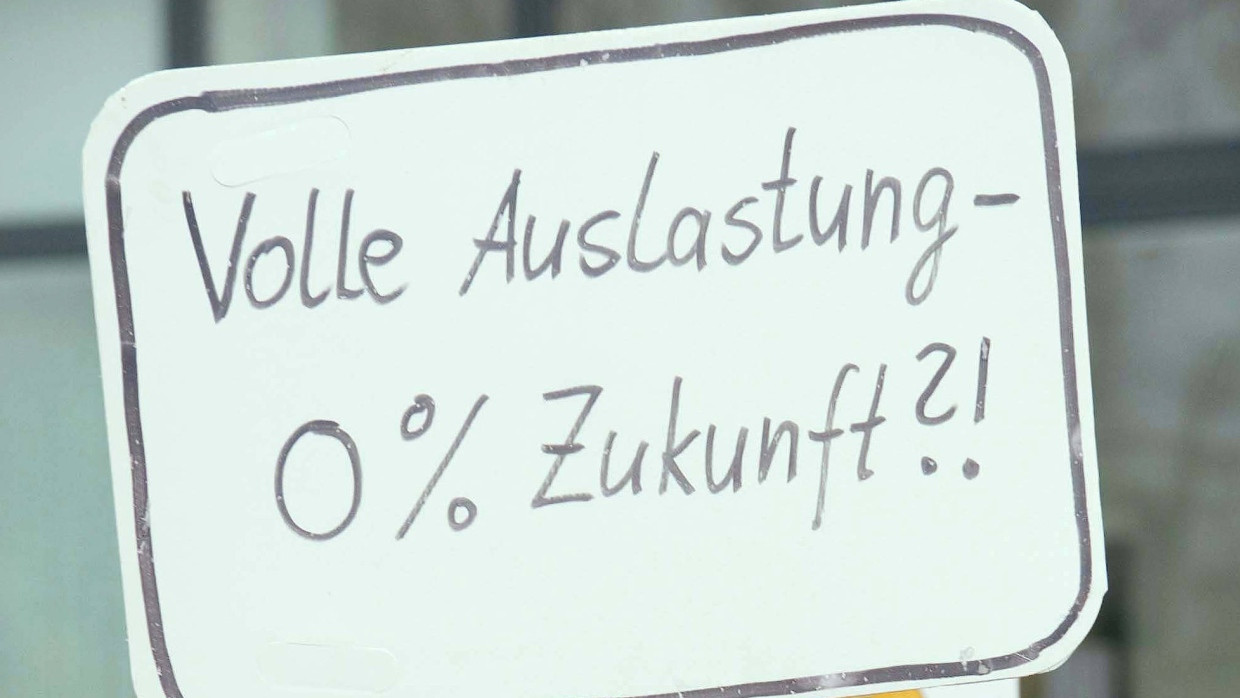 Volle Auslastung-
0% Zukunft?!